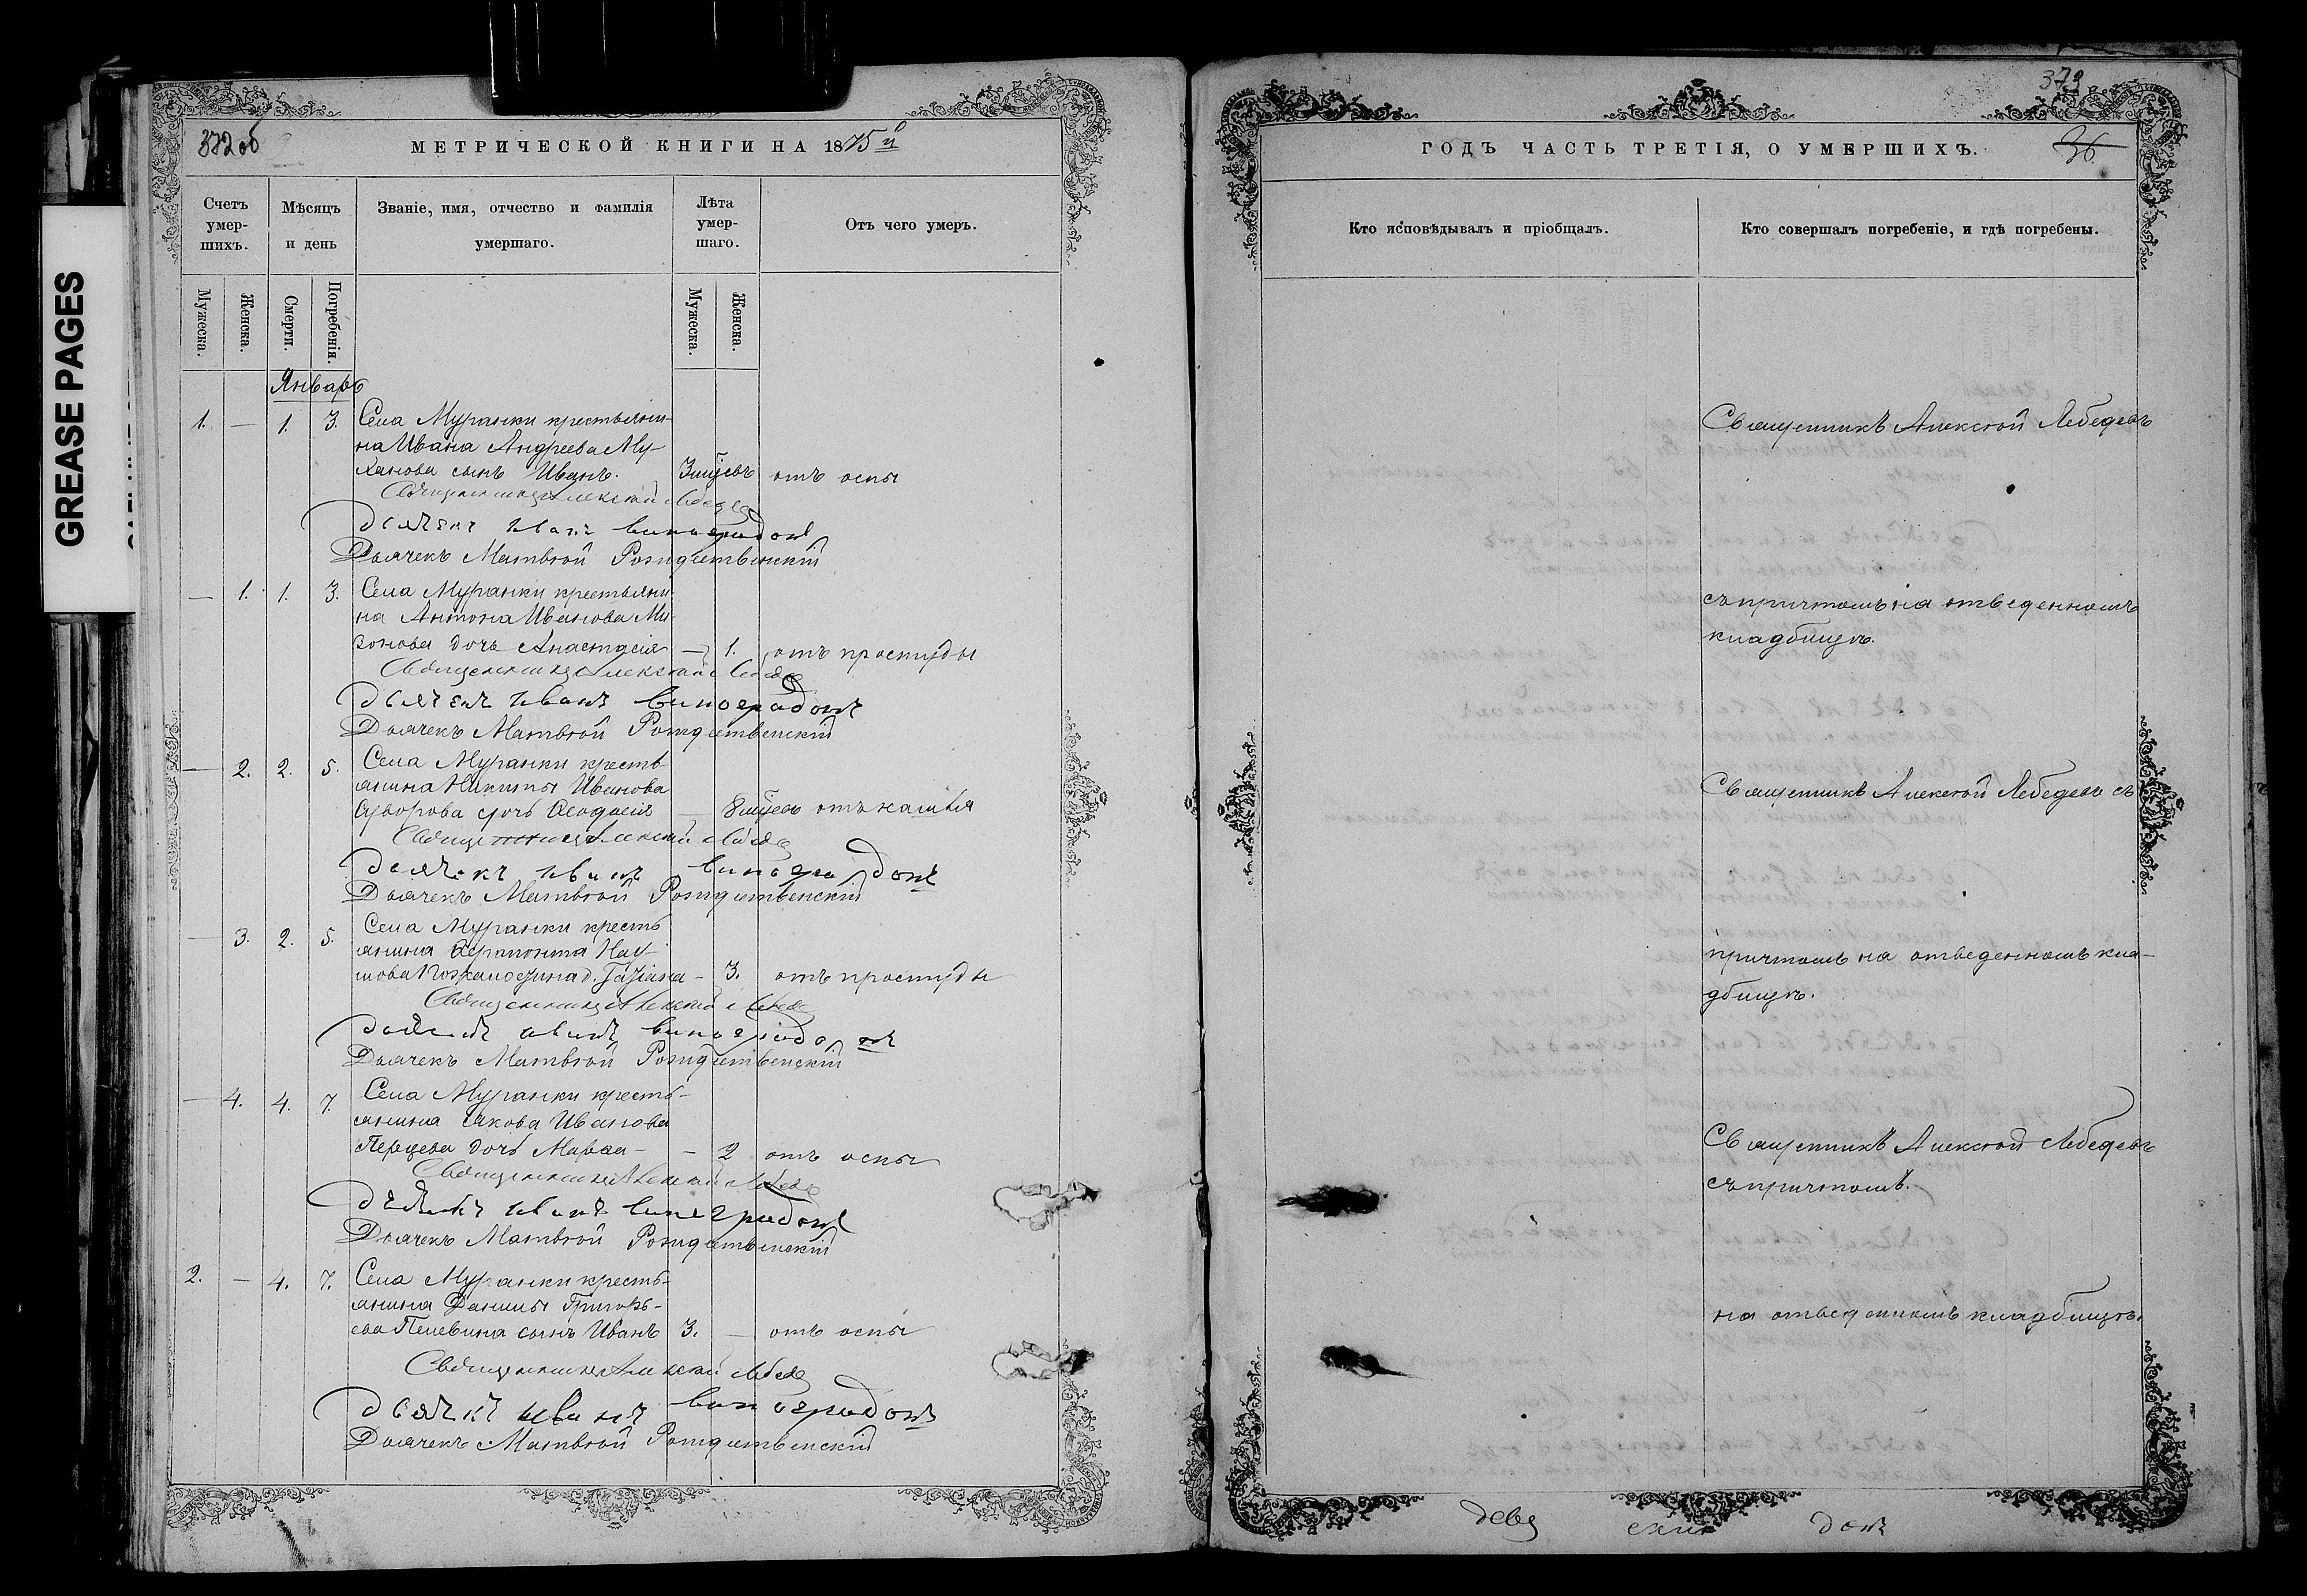 GREASE PAGES
372об
МЕТРИЧЕСКОЙ КНИГИ НА 1875й
Счетъ умер-шихъ.
Мѣсяцъ и день
Званіе, имя, отчество и фамилія умершаго.
Лѣта умер-шаго.
Отъ чего умеръ.
Мужеска.
Женска.
Смерти.
Погребенія.
Мужеска.
Женска.
Январь
1. — 1. 3. Села Муранки крестьяни-
на Ивана Андреева Му-
ханова сынъ Иванъ. 3 мѣсвъ отъ оспы
Священникъ Алексѣй Лебедев
дьячекъ иванъ виноградовъ
Дьячекъ Матвѣй Рождественскій
— 1. 1. 3. Села Муранки крестьяни-
на Антона Иванова Ми-
зонова дочь Анастасія — 1. отъ простуды
Священникъ Алексѣй Лебедев
дьячекъ иванъ виноградовъ
Дьячекъ Матвѣй Рождественскій
— 2. 2. 5. Села Муранки кресть-
янина Никиты Иванова
Суворова дочь Ѳеодосія — 8 мѣсвъ отъ кашля
Священникъ Алексѣй Лебедев
дьячекъ иванъ виноградовъ
Дьячекъ Матвѣй Рождественскій
— 3. 2. 5. Села Муранки кресть
янина Ѳерапонта Нау-
мова д. Таziана — 3. отъ простуды
Священникъ Алексѣй Лебедев
дьячекъ иванъ виноградовъ
Дьячекъ Матвѣй Рождественскій
— 4. 4. 7. Села Муранки кресть-
янина Іакова Иванова
Перцева дочь Марѳа — — 2 отъ оспы
Священникъ Алексѣй Лебедев
дьячекъ иванъ виноградовъ
Дьячекъ Матвѣй Рождественскій
2. — 4. 7. Села Муранки кресть-
янина Данилы Григорь-
ева Пелевина сынъ Иванъ 3. — отъ оспы
Священникъ Алексѣй Лебедев
дьячекъ иванъ виноградовъ
Дьячекъ Матвѣй Рождественскій
373
36
ГОДЪ ЧАСТЬ ТРЕТІЯ, О УМЕРШИХЪ.
Кто исповѣдывалъ и пріобщалъ.
Кто совершалъ погребеніе, и гдѣ погребены.
Священникъ Алексѣй Лебедевъ
съ причтомъ на отведенномъ
кладбищѣ.
Священникъ Алексѣй Лебедевъ съ
причтомъ на отведенномъ кла-
дбищѣ.
Священникъ Алексѣй Лебедевъ
съ причтомъ.
на отведенномъ кладбищѣ.